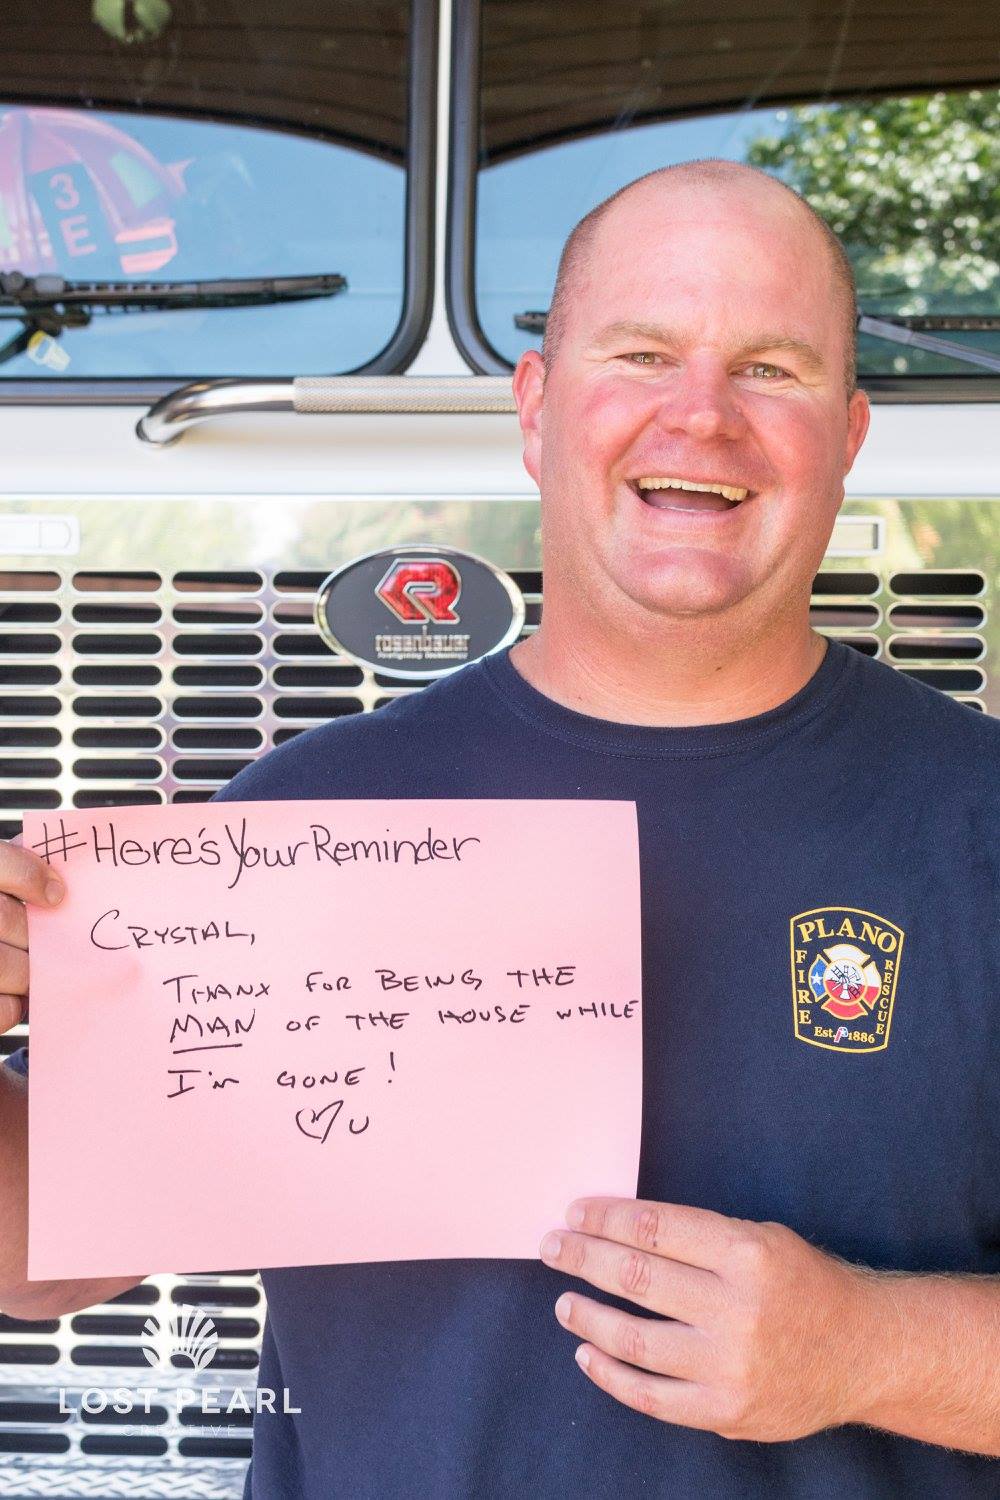 3
E
rosenbauer
firefighting technology
#Here'sYourReminder
CRYSTAL,
THANX FOR BEING THE
MAN OF THE HOUSE WHILE
I'm GONE!
U
PLANO
FIRE
RESCUE
Est. 1886
LOST PEARL
CREATIVE